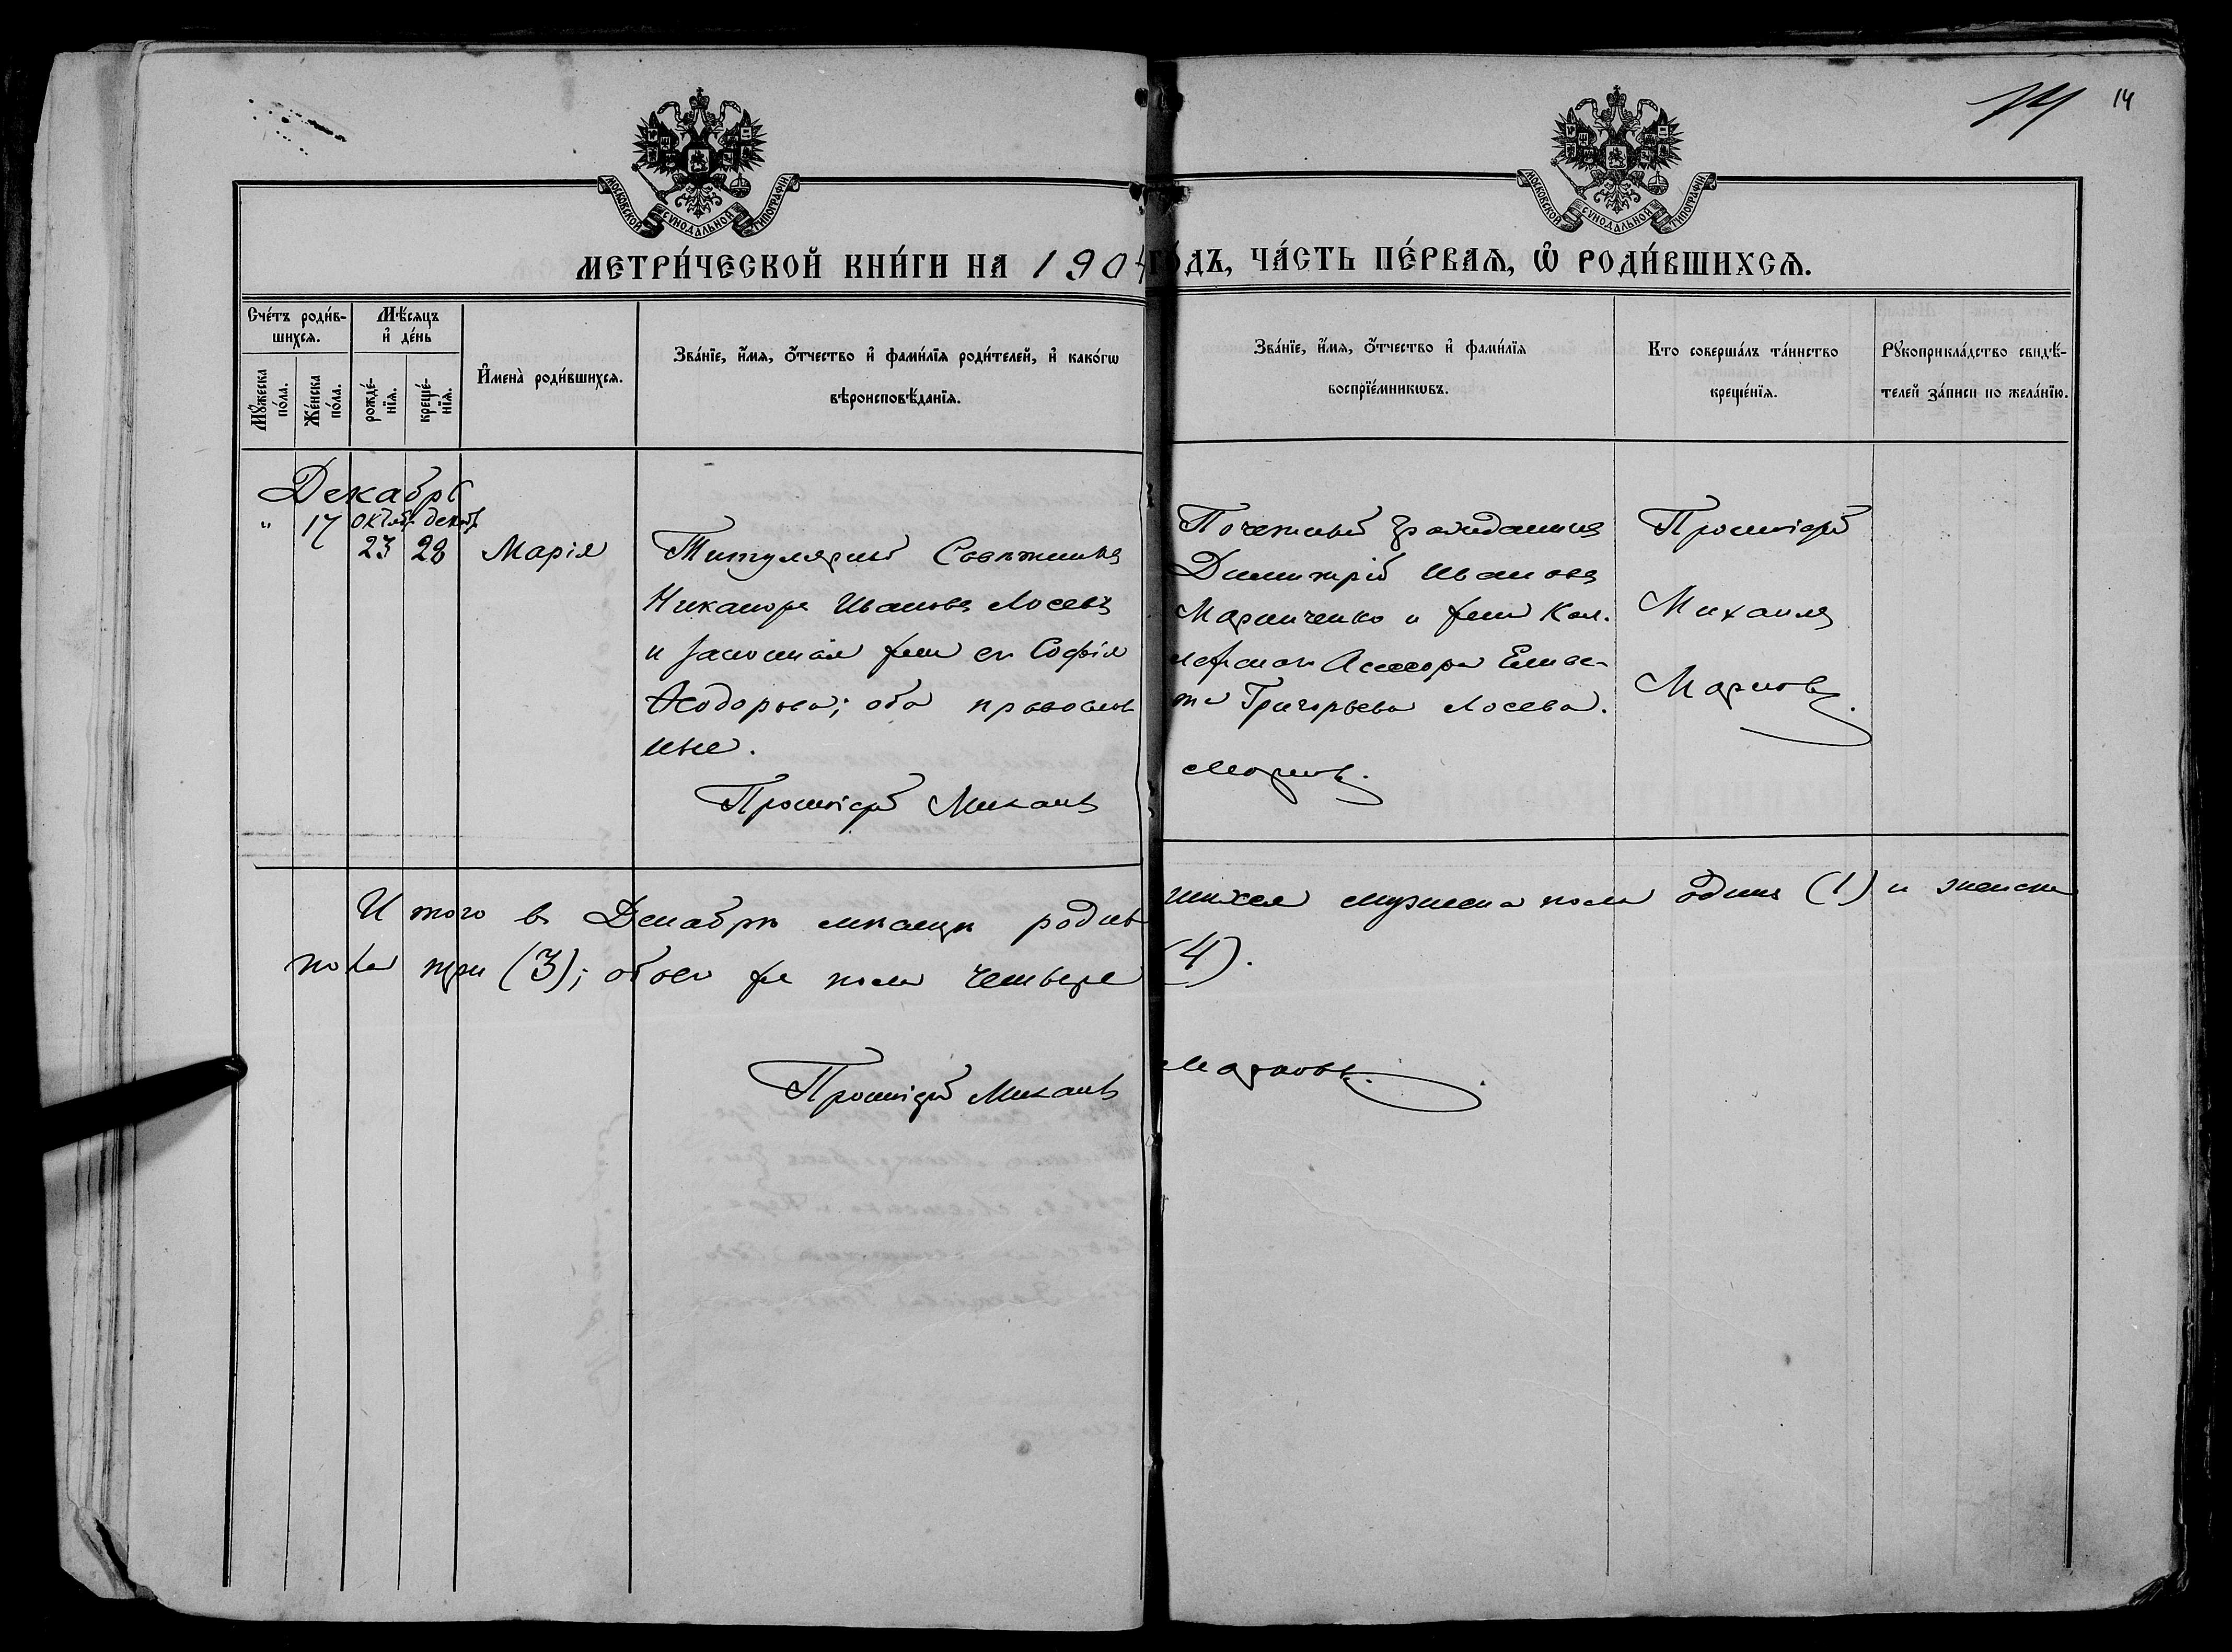 14
14
МОСКОВСКОЙ СѴНОДАЛЬНОЙ ТИПОГРАФІИ
МОСКОВСКОЙ СѴНОДАЛЬНОЙ ТИПОГРАФІИ
МЕТРИ́ЧЕСКОЙ КНИ́ГИ НА 1904 ГО́ДЪ, ЧА́СТЬ ПЕ́РВАѦ, Ѡ҆ РОДИ́ВШИХСѦ.
Сче́тъ роди́в-
шихсѧ.
Мꙋ́жеска
по́ла.
Же́нска
по́ла.
Мѣ́сѧцъ
и҆ де́нь
рожде́-
нїѧ.
креще́-
нїѧ.
И҆мена̀ роди́вшихсѧ.
Зва́нїе, и҆́мѧ, ѻ҆́тчество и҆ фами́лїѧ роди́телей, и҆ како́гѡ
вѣроисповѣ́данїѧ.
Зва́нїе, и҆́мѧ, ѻ҆́тчество и҆ фами́лїѧ
воспрїе́мникѡвъ.
Кто соверша́лъ та́инство
креще́нїѧ.
Рꙋкоприкла́дство свидѣ́-
телей за́писи по жела́нїю.
Декабрь
" 17 октяб. декаб.
23 28 Марія
Титулярный Совѣтникъ
Никаноръ Ивановъ Лосевъ
и законная жена его Софія
Ѳеодорова; оба православ
ные.
Протоіерей Михаилъ
Почетный гражданинъ
Димитрій Ивановъ
Маринченко и жена Кол-
лежскаго Ассесора Елиза-
та Григорьева Лосева.
Марковъ.
Протоіерей
Михаилъ
Марковъ.
Итого въ Декабрѣ мѣсяцѣ родив
шихся мужеска пола одинъ (1) и женска
пола три (3); обоего же пола четыре (4).
Протоіерей Михаилъ
Марковъ.